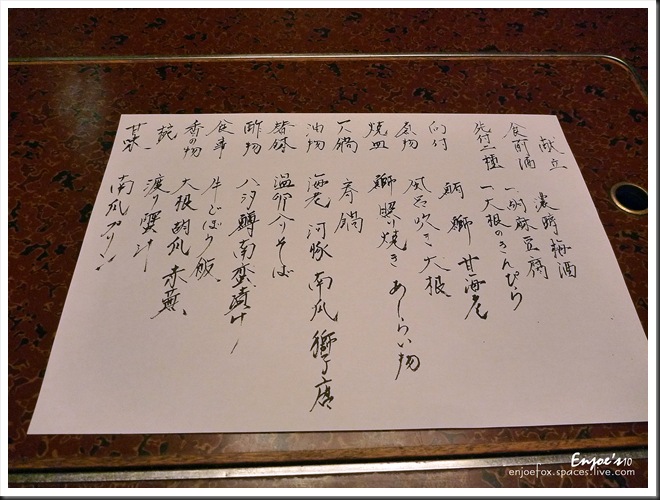 献立
食前酒 濃醇梅酒
先付二種 一胡麻豆腐
一大根のきんぴら
向付 鯛 鰤 甘海老
煮物 風呂吹き大根
焼皿 鰤照り焼き あしらい物
一人鍋 寿鍋
油物 海老 河豚 南瓜 獅子唐
替鉢 温卵入りそば
酢物 八汐鱒南蛮漬け
食事 牛ごぼう飯
香の物 大根 胡瓜 赤蕪
椀 渡り蟹汁
甘味 南瓜プリン
Enjoe's10
enjoefox.spaces.live.com